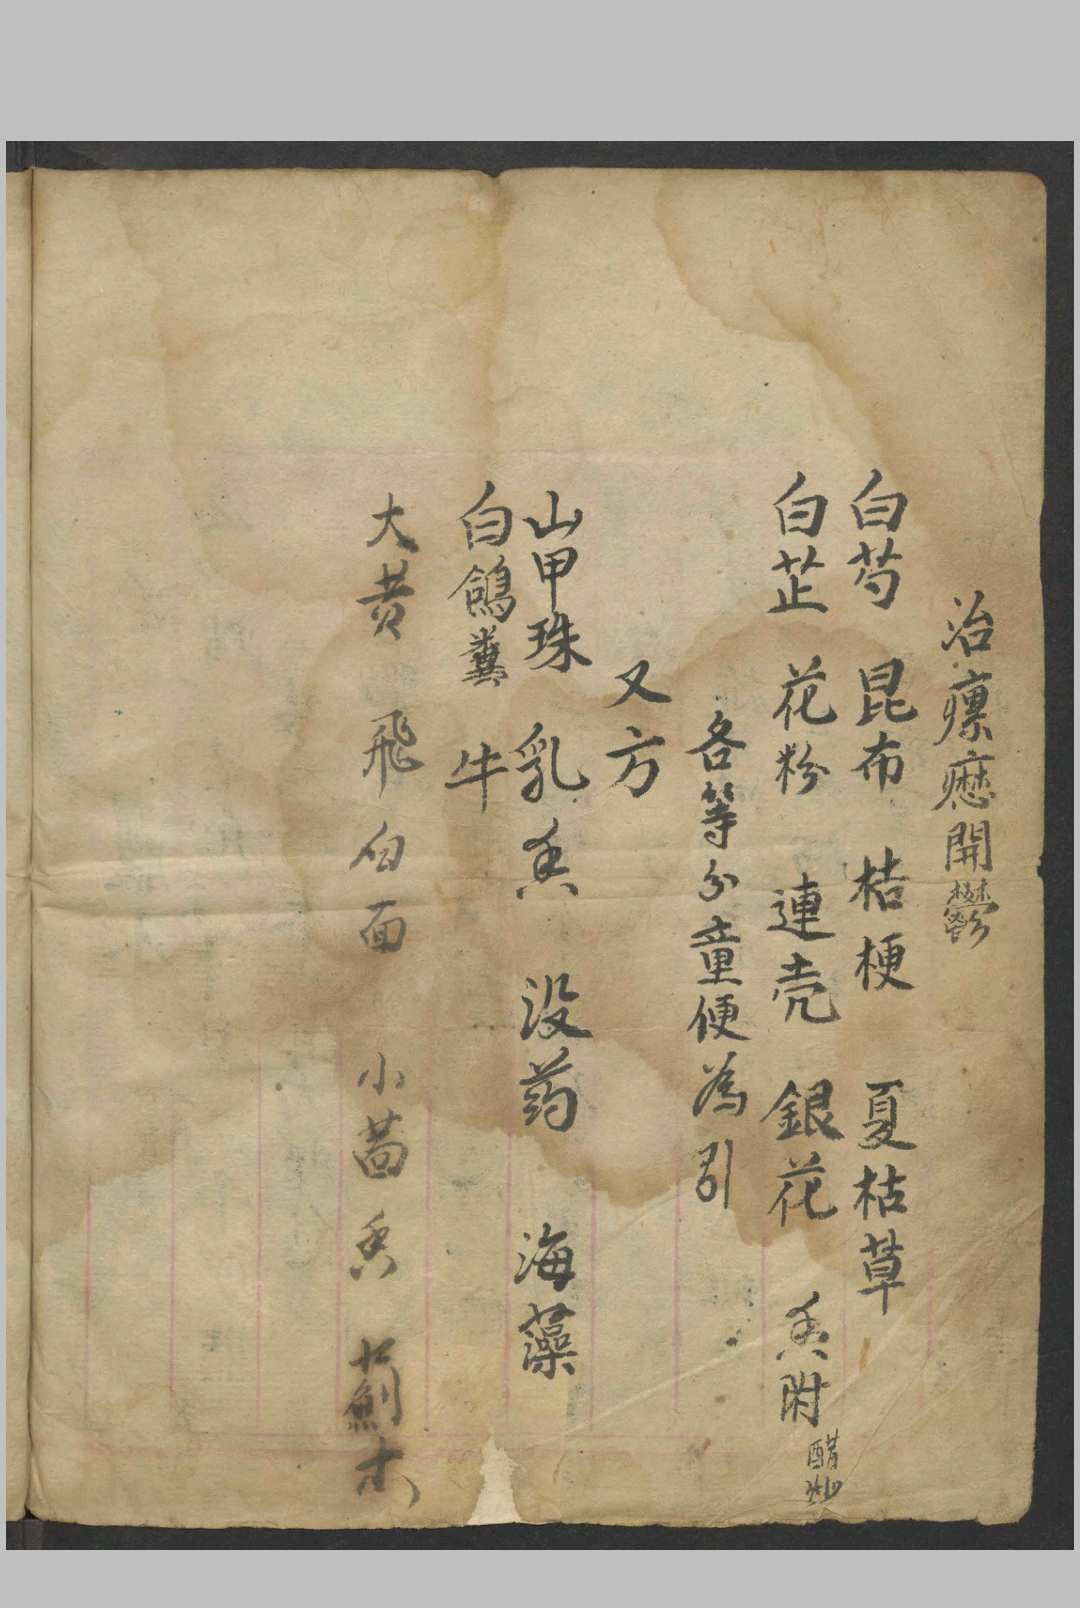 治瘰癧開鬱
白芍 昆布 桔梗 夏枯草
白芷 花粉 連壳 銀花 香附 醋炒
各等分童便為引
又方
山甲珠 乳香 没药 海藻
白鴿糞 牛
大黄 飛白面 小茴香 蘓木